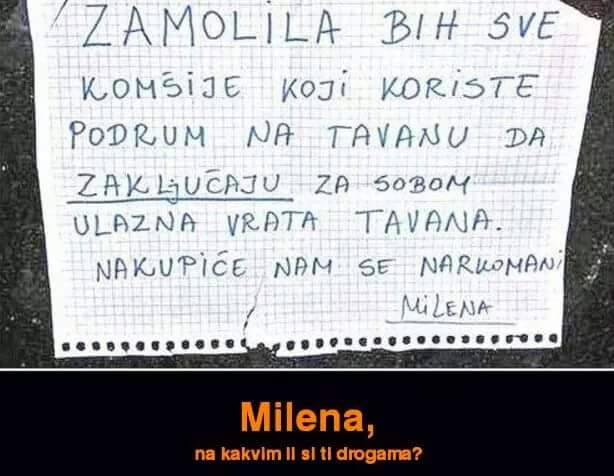 ZAMOLILA BIH SVE
KOMŠIJE KOJI KORISTE
PODRUM NA TAVANU DA
ZAKLjUČAJU ZA SOBOM
ULAZNA VRATA TAVANA.
NAKUPIĆE NAM SE NARKOMANI
MILENA
Milena,
na kakvim li si ti drogama?